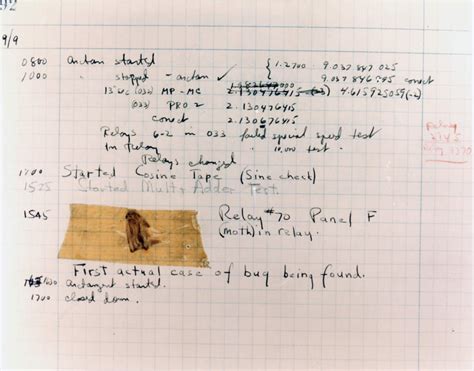 92
9/9
0800 antan started { 1.2700 9.037 847 025
1000 " stopped - antan ✓ 9.037 846 995 correct
13"uc (032) MP - MC 2.130476415 (-3) 4.615925059(-2)
(033) PRO 2 2.130476415
correct 2.130676415
Relays 6-2 in 033 failed special speed test
In Relay " test.
Relay
3370
Relays changed
1700 Started Cosine Tape (Sine check)
1525 Started Mult+Adder Test.
1545 Relay #70 Panel F
(moth) in relay.
First actual case of bug being found.
1630 antangent started.
1700 closed down.